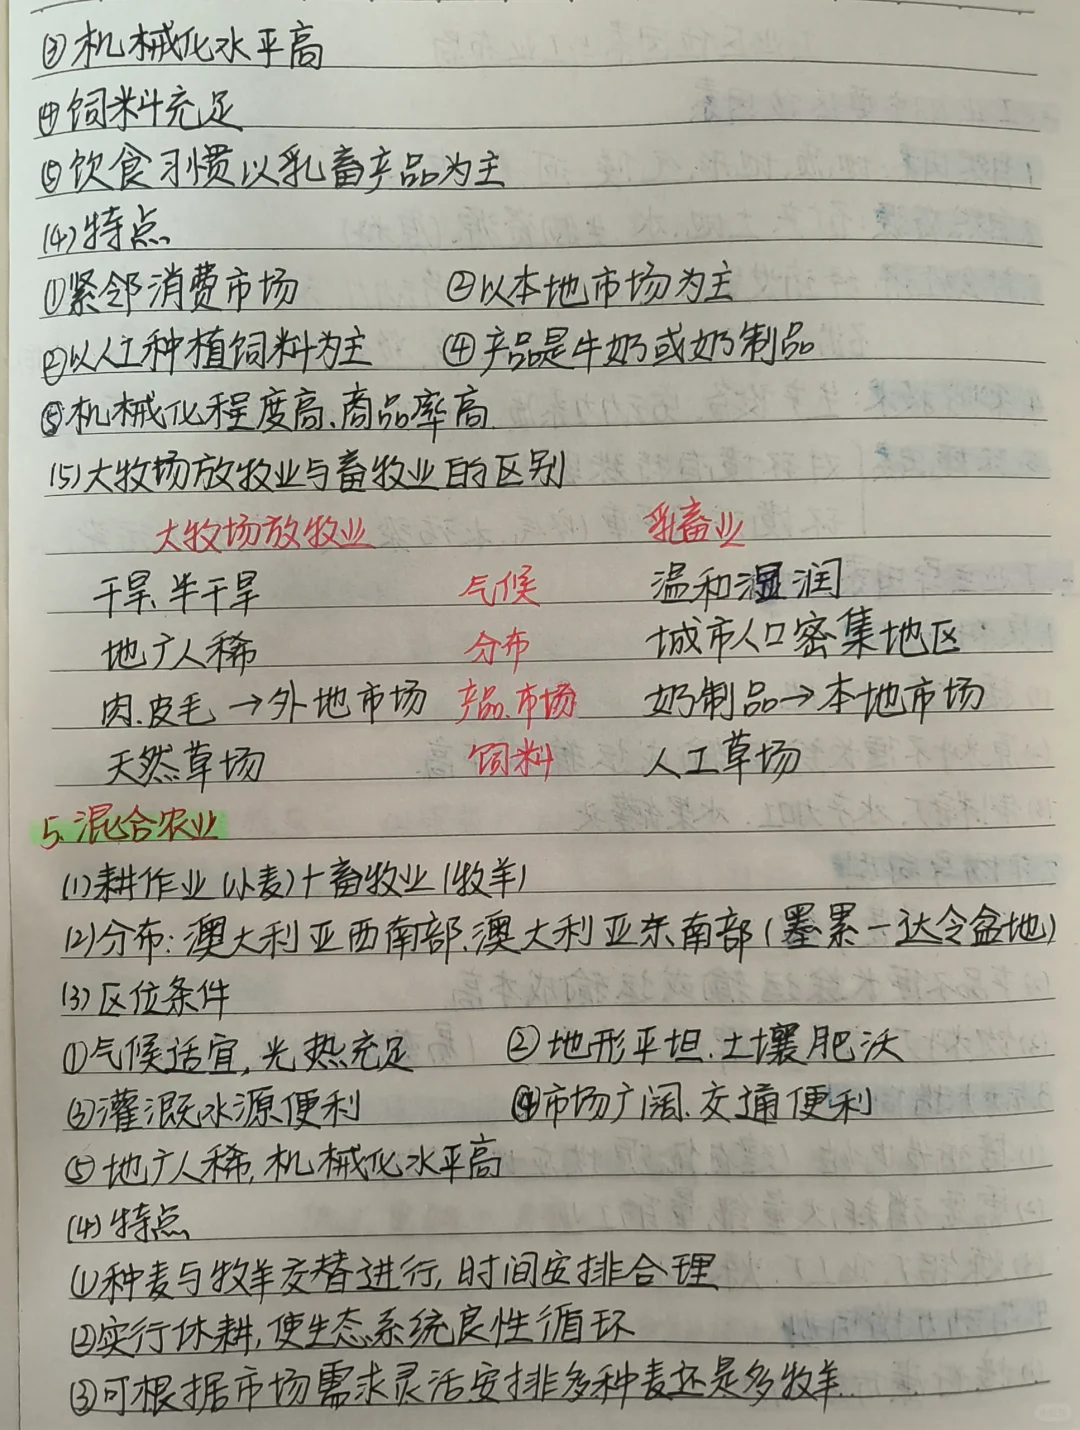 ③机械化水平高
④饲料充足
⑤饮食习惯以乳畜产品为主
(4)特点
①紧邻消费市场 ②以本地市场为主
②以人工种植饲料为主 ④产品是牛奶或奶制品
⑤机械化程度高、商品率高
(5)大牧场放牧业与畜牧业的区别
大牧场放牧业 乳畜业
干旱、半干旱 气候 温和湿润
地广人稀 分布 城市人口密集地区
肉、皮毛→外地市场 产品、市场 奶制品→本地市场
天然草场 饲料 人工草场
5、混合农业
(1)耕作业(小麦)+畜牧业(牧羊)
(2)分布:澳大利亚西南部、澳大利亚东南部(墨累-达令盆地)
(3)区位条件
①气候适宜,光热充足 ②地形平坦、土壤肥沃
③灌溉水源便利 ④市场广阔、交通便利
⑤地广人稀,机械化水平高
(4)特点
①种麦与牧羊交替进行,时间安排合理
②实行休耕,使生态系统良性循环
③可根据市场需求灵活安排多种麦还是多牧羊